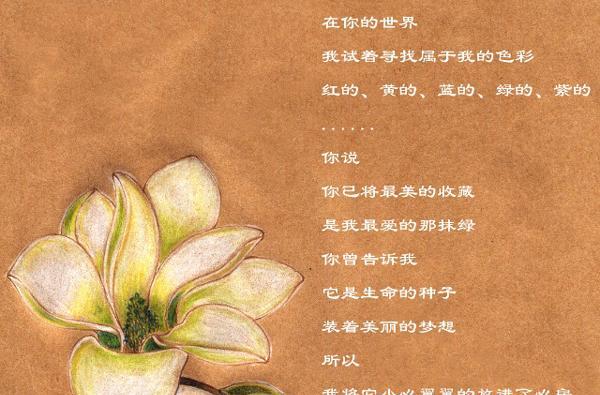 在你的世界
我试着寻找属于我的色彩
红的、黄的、蓝的、绿的、紫的
......
你说
你已将最美的收藏
是我最爱的那抹绿
你曾告诉我
它是生命的种子
装着美丽的梦想
所以
我将它小心翼翼的放进了心房